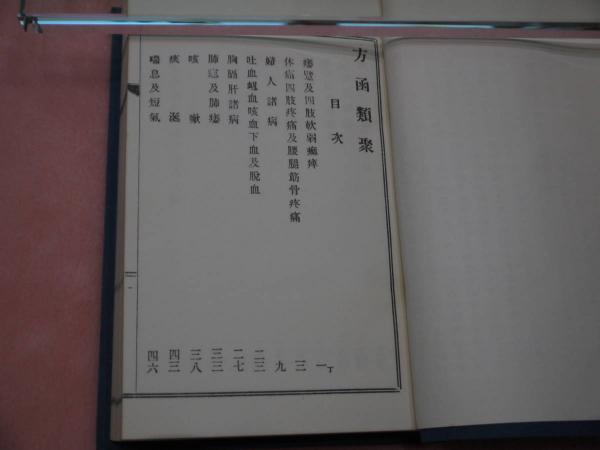 方函類聚
目次
痿躄及四肢軟弱痲痺 一丁
体痛四肢疼痛及腰腿筋骨疼痛 三
婦人諸病 九
吐血衄血咳血下血及脫血 二三
胸膈肝諸病 二七
肺冦及肺痿 三三
咳嗽 三八
痰涎 四三
喘息及短氣 四六
一